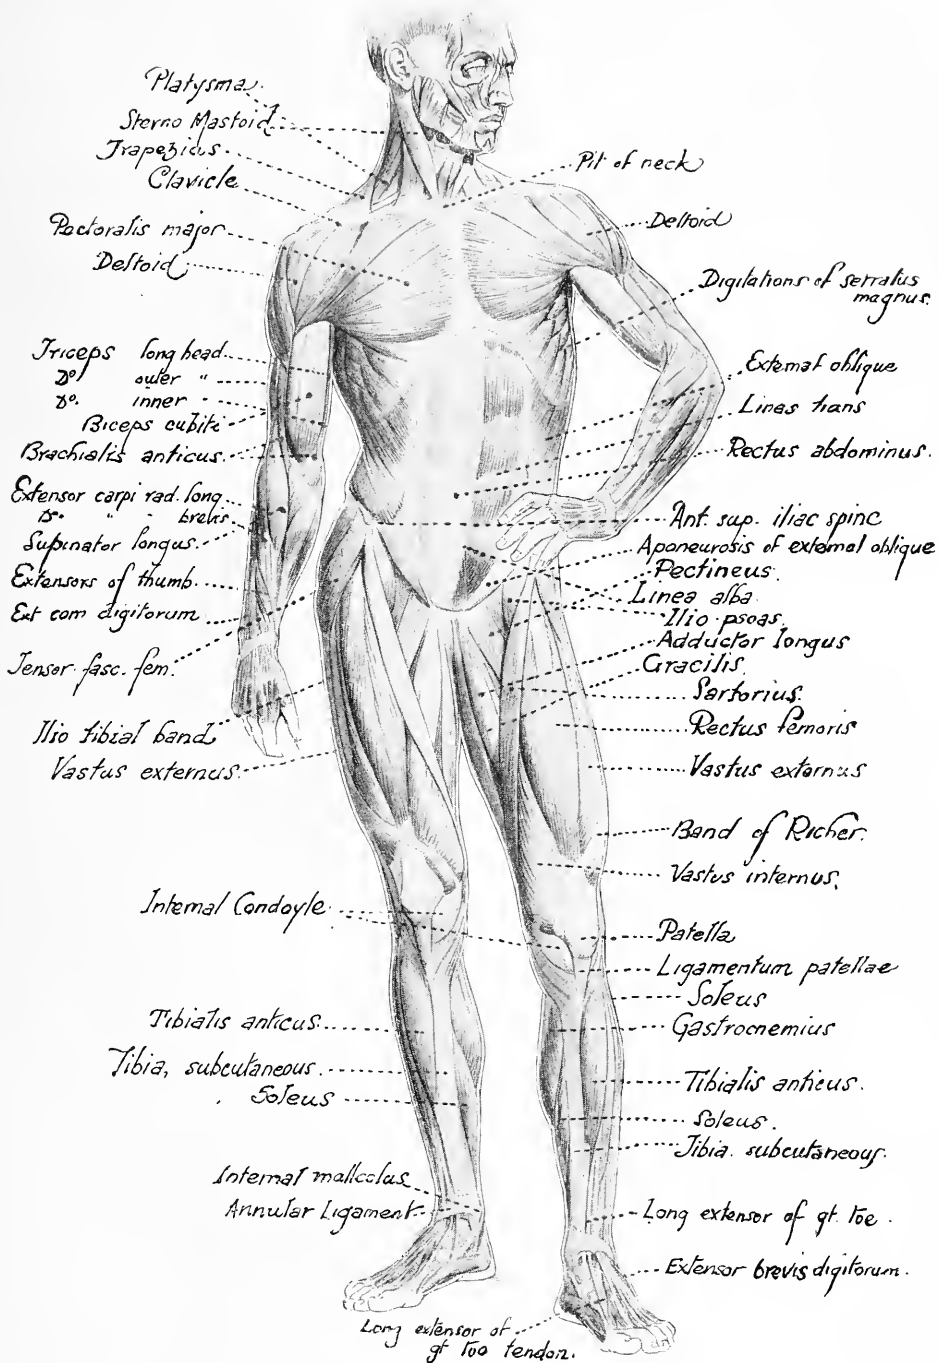 Platysma
Sterno Mastoid
Trapezius
Clavicle
Pectoralis major
Deltoid
Triceps long head
Do outer "
Do. inner "
Biceps cubiti
Brachialis anticus
Extensor carpi rad. long
Do. " " brevis
Supinator longus
Extensors of thumb
Ext com digitorum
Tensor fasc. fem.
Ilio tibial band
Vastus externus
Internal Condoyle
Tibialis anticus
Tibia, subcutaneous
Soleus
Internal malleolus
Annular Ligament
Long extensor of
gt toe tendon.
Pit of neck
Deltoid
Digitations of serratus
magnus.
External oblique
Linea trans
Rectus abdominus.
Ant. sup. iliac spine
Aponeurosis of external oblique
Pectineus
Linea alba
Ilio psoas
Adductor longus
Gracilis.
Sartorius.
Rectus femoris
Vastus externus
Band of Richer.
Vastus internus.
Patella
Ligamentum patellae
Soleus
Gastrocnemius
Tibialis anticus.
Soleus.
Tibia. subcutaneous.
Long extensor of gt. toe.
Extensor brevis digitorum.